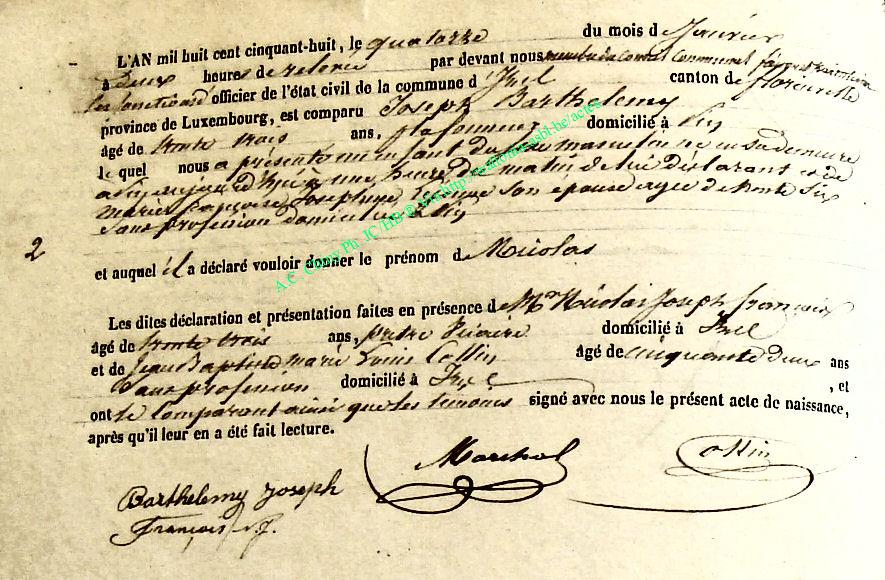 L'AN mil huit cent cinquant-huit, le quatorze du mois de Janvier
à deux heures de relevée par devant nous membre du conseil communal faisant
les fonctions d'officier de l'état civil de la commune d'Izel canton de florenville
province de Luxembourg, est comparu Joseph Barthelemy
âgé de trente trois ans, plafonneur domicilié à
le quel nous a présenté un enfant du sexe masculin né en sa demeure
à une heure du matin de lui déclarant et de
marie françoise Josephine son épouse agée de trente six
sans profession domiciliée
2
et auquel il a déclaré vouloir donner le prénom de Nicolas
Les dites déclaration et présentation faites en présence de Mr Nicolas Joseph françois
âgé de trente trois ans, prêtre vicaire domicilié à Izel
et de Jean Baptiste marie Louis Collin âgé de cinquante deux ans
sans profession domicilié à Izel , et
ont le comparant ainsi que les témoins signé avec nous le présent acte de naissance,
après qu'il leur en a été fait lecture.
Marchal Collin
Barthelemy Joseph
François N. J.